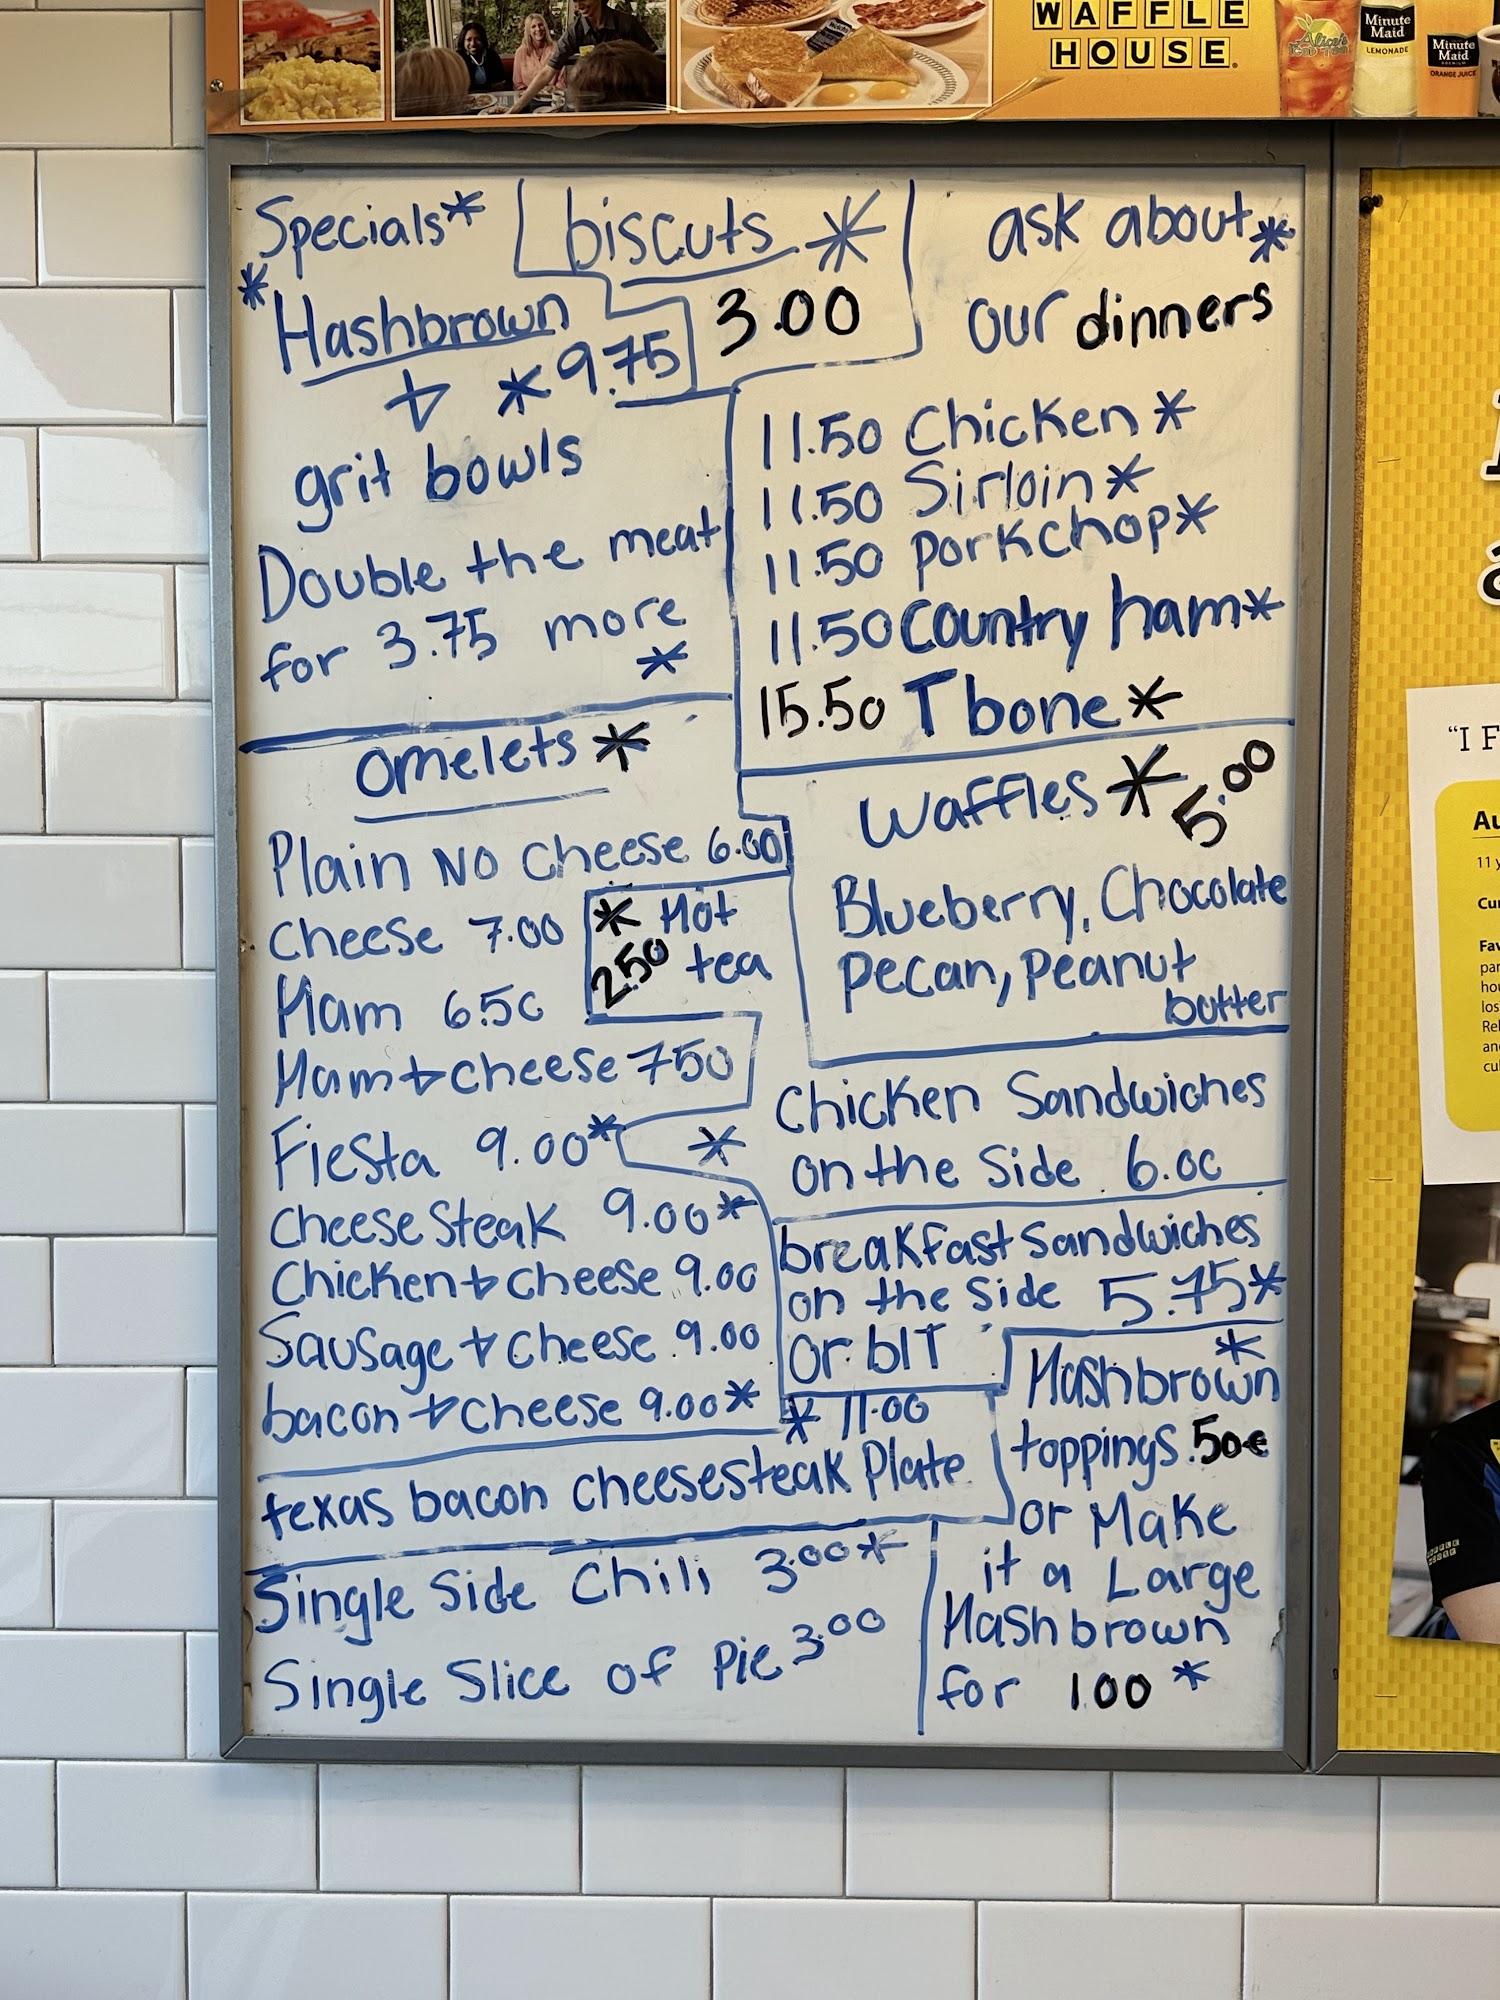 WAFFLE
HOUSE
Alice's
ICED TEA
Minute
Maid
LEMONADE
Minute
Maid
PREMIUM
ORANGE JUICE
Specials*
*Hashbrown
+ *9.75
grit bowls
Double the meat
for 3.75 more
*
biscuts *
3.00
ask about*
our dinners
11.50 Chicken *
11.50 Sirloin *
11.50 Porkchop *
11.50 Country ham *
15.50 T bone *
omelets *
Plain NO cheese 6.00
cheese 7.00
Ham 6.50
Ham + cheese 750
Fiesta 9.00*
cheese steak 9.00*
Chicken + cheese 9.00
Sausage + cheese 9.00
bacon + cheese 9.00*
* Hot
2.50 tea
Waffles * 5.00
Blueberry, Chocolate
Pecan, Peanut
butter
* Chicken Sandwiches
on the side 6.00
breakfast sandwiches
on the side 5.75*
or blT
* 11.00
texas bacon cheesesteak Plate
Single side chili 3.00*
Single slice of Pie 3.00
*
Hashbrown
toppings .50¢
or Make
it a Large
Hashbrown
for 1.00 *
"I F
Au
11 y
Cur
Fav
par
hou
los
Rel
and
cul
WAFFLE
HOUSE